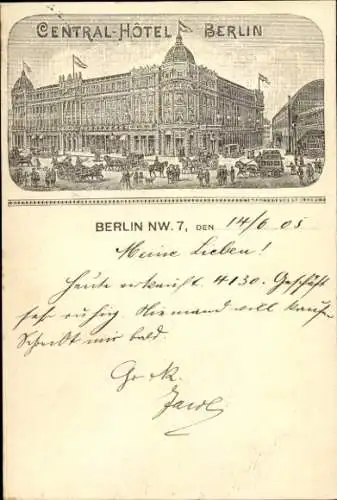 CENTRAL-HÔTEL BERLIN
BERLIN NW. 7, DEN 14/6 05
Meine Lieben!
Heute verkauft 4130. Geschäft
sehr ruhig Niemand will kaufen
Schreibt mir bald.
Gr. K.